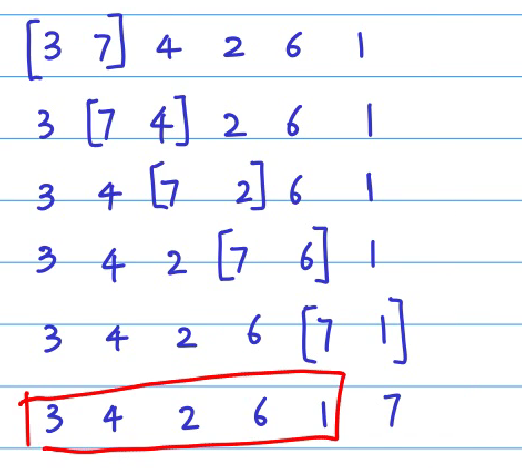 [3 7] 4 2 6 1
3 [7 4] 2 6 1
3 4 [7 2] 6 1
3 4 2 [7 6] 1
3 4 2 6 [7 1]
3 4 2 6 1 7